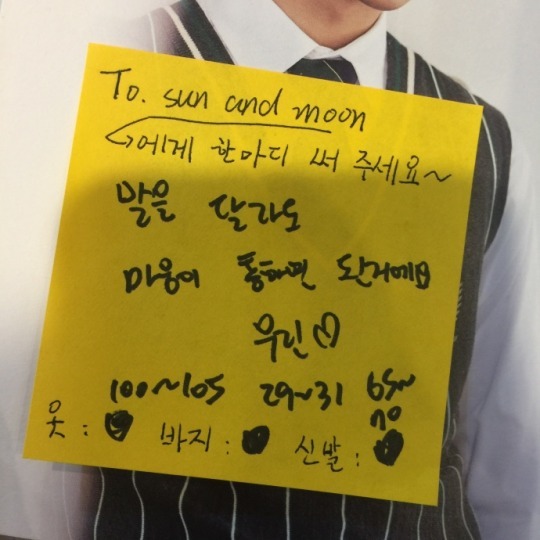 To. sun and moon
에게 한마디 써 주세요~
말을 달라도
마음이 통하면 된거에요
우린♡
100~105 29~31 65~70
옷: 바지: 신발: